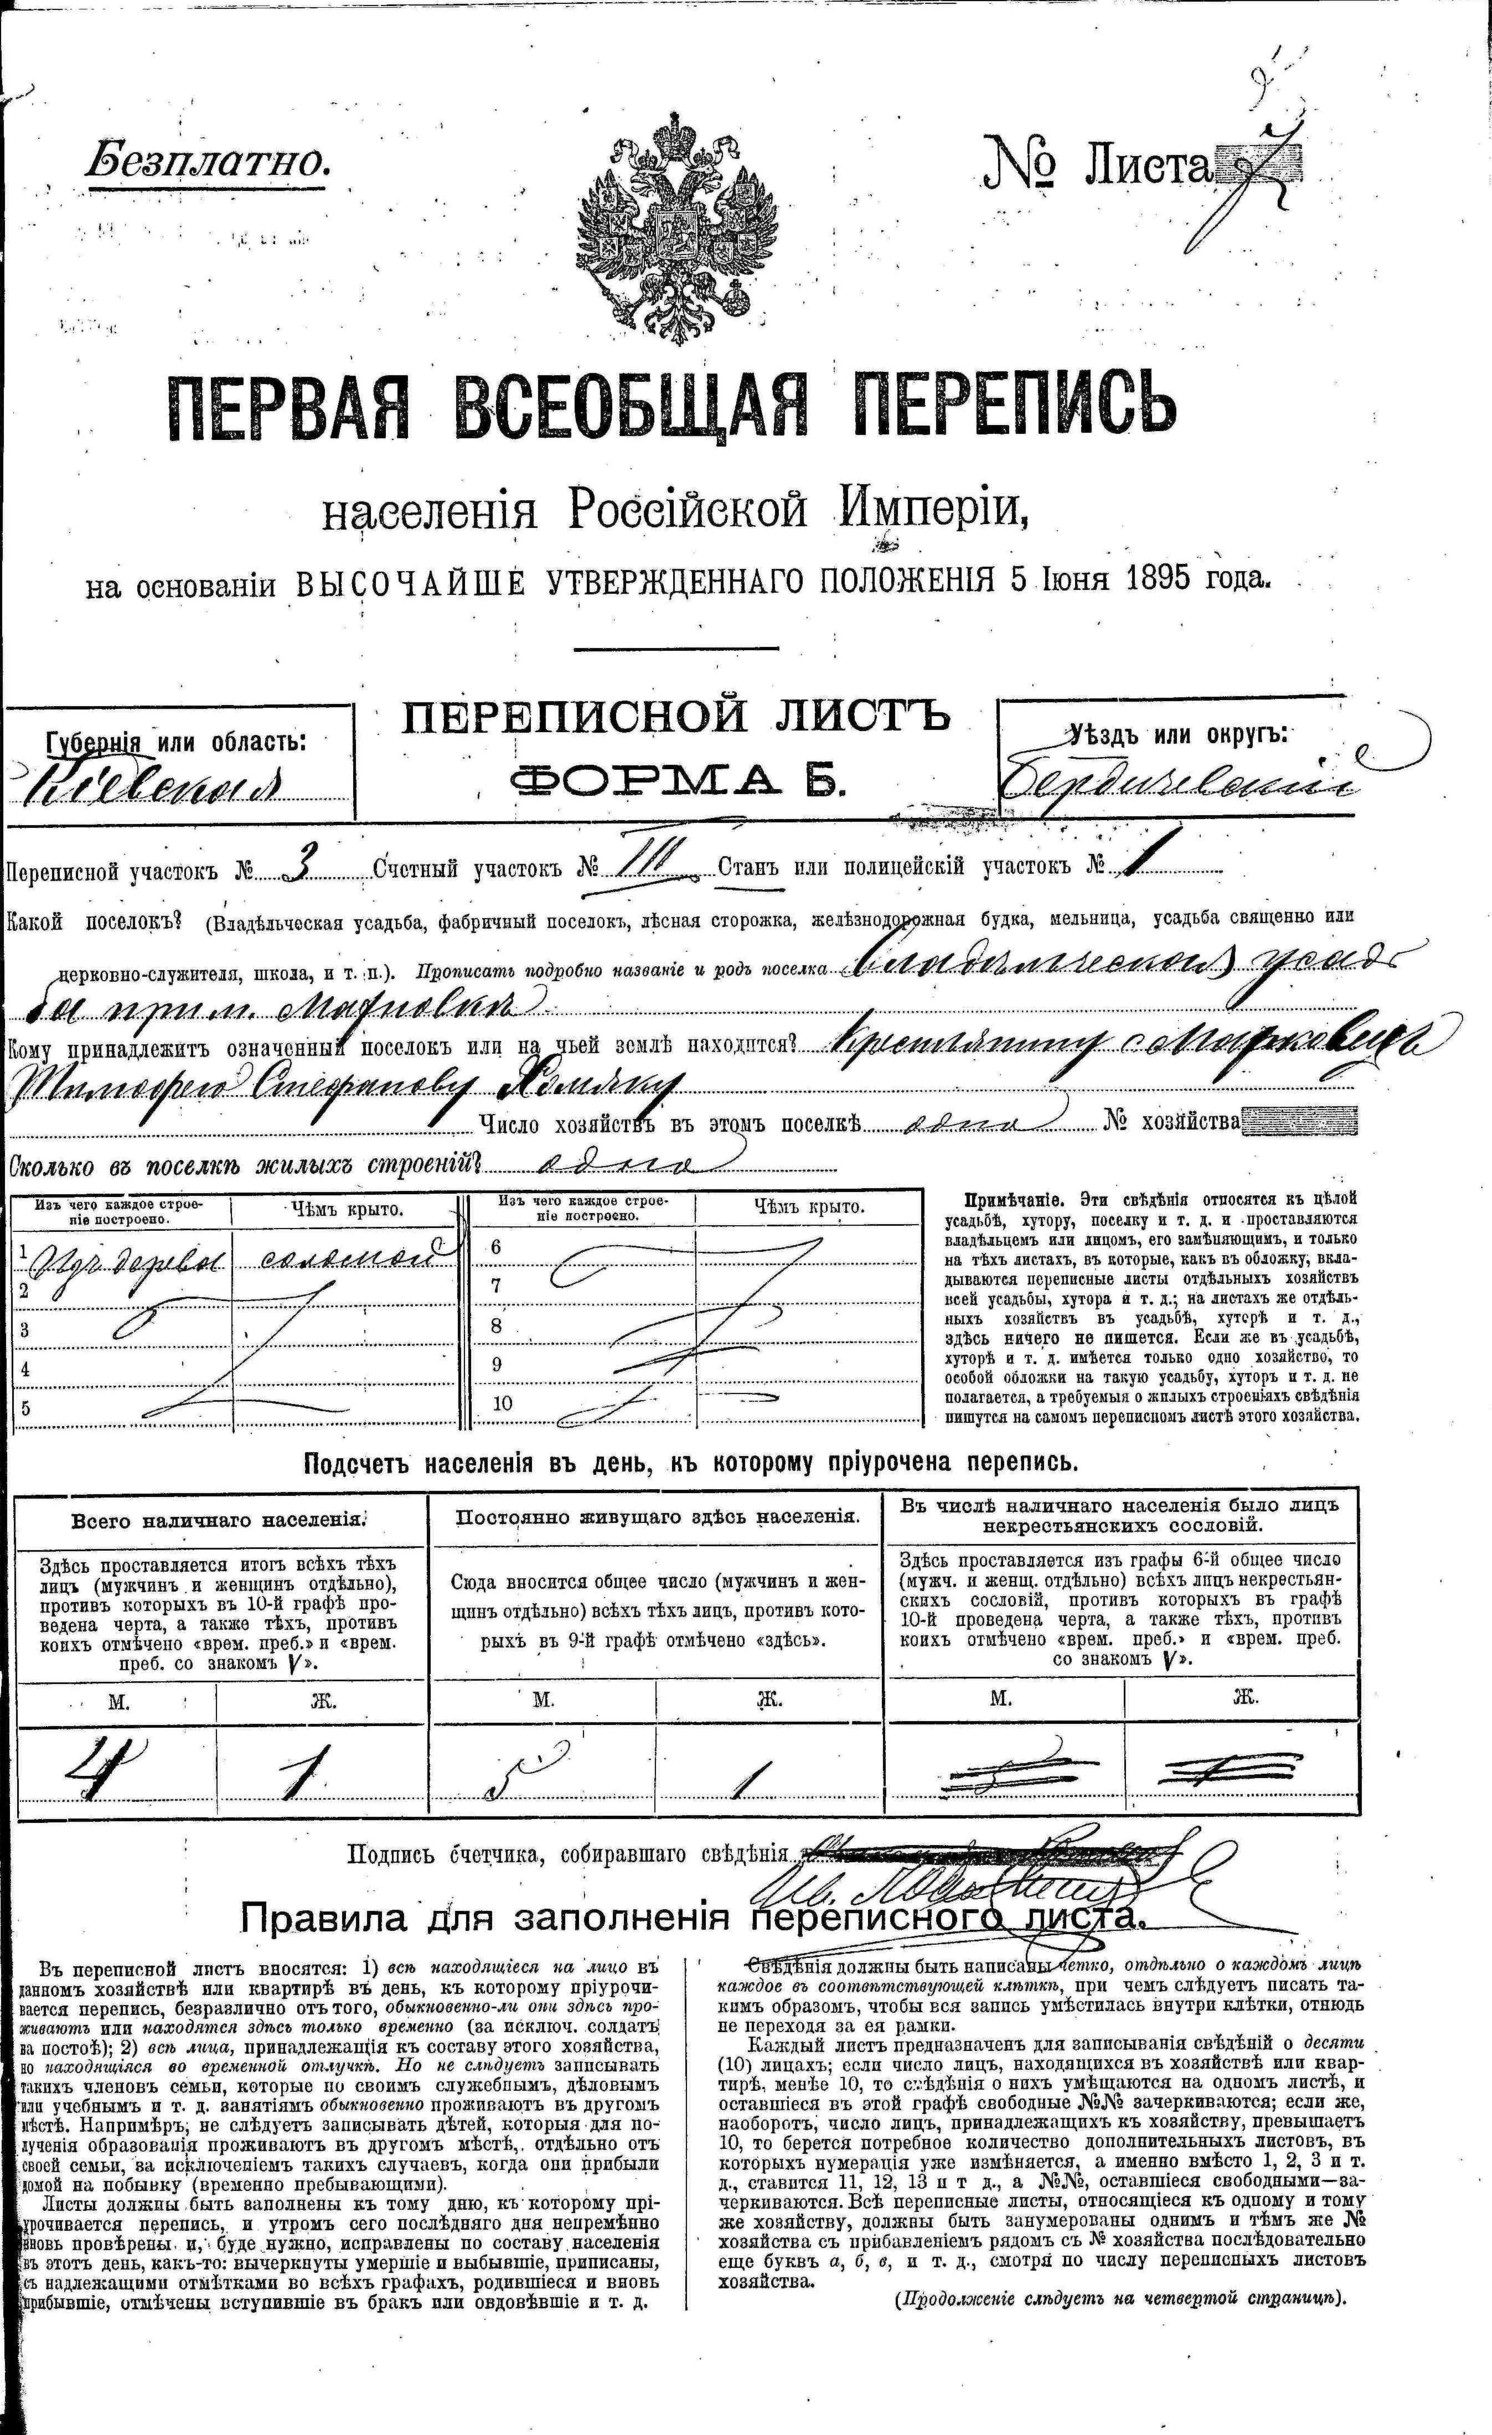 Безплатно.
№ Листа
ПЕРВАЯ ВСЕОБЩАЯ ПЕРЕПИСЬ
населенія Россійской Имперіи,
на основаніи ВЫСОЧАЙШЕ УТВЕРЖДЕННАГО ПОЛОЖЕНІЯ 5 Іюня 1895 года.
ПЕРЕПИСНОЙ ЛИСТЪ
ФОРМА Б.
Губернія или область:
Кіевская
Уѣздъ или округъ:
Бердичевскій
Переписной участокъ № 3 Счетный участокъ № III Станъ или полицейскій участокъ № 1
Какой поселокъ? (Владѣльческая усадьба, фабричный поселокъ, лѣсная сторожка, желѣзнодорожная будка, мельница, усадьба священно или
церковно-служителя, школа, и т. п.). Прописать подробно названіе и родъ поселка Владѣльческая усадь
ба при м. Махновка
Кому принадлежитъ означенный поселокъ или на чьей землѣ находится? Крестянину
Тимофею Стефанову Хомяку
Число хозяйствъ въ этомъ поселкѣ одно № хозяйства
Сколько въ поселкѣ жилыхъ строеній? одно
Изъ чего каждое строе-
ніе построено.
Чѣмъ крыто.
Изъ чего каждое строе-
ніе построено.
Чѣмъ крыто.
1 Изъ дерева соломой
2
3
4
5
6
7
8
9
10
Примѣчаніе. Эти свѣдѣнія относятся къ цѣлой
усадьбѣ, хутору, поселку и т. д. и проставляются
владѣльцемъ или лицомъ, его замѣняющимъ, и только
на тѣхъ листахъ, въ которые, какъ въ обложку, вкла-
дываются переписные листы отдѣльныхъ хозяйствъ
всей усадьбы, хутора и т. д.; на листахъ же отдѣль-
ныхъ хозяйствъ въ усадьбѣ, хуторѣ и т. д.,
здѣсь ничего не пишется. Если же въ усадьбѣ,
хуторѣ и т. д. имѣется только одно хозяйство, то
особой обложки на такую усадьбу, хуторъ и т. д. не
полагается, а требуемыя о жилыхъ строеніяхъ свѣдѣнія
пишутся на самомъ переписномъ листѣ этого хозяйства.
Подсчетъ населенія въ день, къ которому пріурочена перепись.
Всего наличнаго населенія.
Здѣсь проставляется итогъ всѣхъ тѣхъ
лицъ (мужчинъ и женщинъ отдѣльно),
противъ которыхъ въ 10-й графѣ про-
ведена черта, а также тѣхъ, противъ
коихъ отмѣчено «врем. преб.» и «врем.
преб. со знакомъ V».
Постоянно живущаго здѣсь населенія.
Сюда вносится общее число (мужчинъ и жен-
щинъ отдѣльно) всѣхъ тѣхъ лицъ, противъ кото-
рыхъ въ 9-й графѣ отмѣчено «здѣсь».
Въ числѣ наличнаго населенія было лицъ
некрестьянскихъ сословій.
Здѣсь проставляется изъ графы 6-й общее число
(мужч. и женщ. отдѣльно) всѣхъ лицъ некрестьян-
скихъ сословій, противъ которыхъ въ графѣ
10-й проведена черта, а также тѣхъ, противъ
коихъ отмѣчено «врем. преб.» и «врем. преб.
со знакомъ V».
М. Ж. М. Ж. М. Ж.
4 1 5 1
Подпись счетчика, собиравшаго свѣдѣнія
Правила для заполненія переписного листа.
Въ переписной листъ вносятся: 1) всѣ находящіеся на лицо въ
данномъ хозяйствѣ или квартирѣ въ день, къ которому пріурочи-
вается перепись, безразлично отъ того, обыкновенно-ли они здѣсь про-
живаютъ или находятся здѣсь только временно (за исключ. солдатъ
на постоѣ); 2) всѣ лица, принадлежащія къ составу этого хозяйства,
но находящіяся во временной отлучкѣ. Но не слѣдуетъ записывать
такихъ членовъ семьи, которые по своимъ служебнымъ, дѣловымъ
или учебнымъ и т. д. занятіямъ обыкновенно проживаютъ въ другомъ
мѣстѣ. Напримѣръ, не слѣдуетъ записывать дѣтей, которыя для по-
лученія образованія проживаютъ въ другомъ мѣстѣ, отдѣльно отъ
своей семьи, за исключеніемъ такихъ случаевъ, когда они прибыли
домой на побывку (временно пребывающими).
Листы должны быть заполнены къ тому дню, къ которому прі-
урочивается перепись, и утромъ сего послѣдняго дня непремѣнно
вновь провѣрены и, буде нужно, исправлены по составу населенія
въ этотъ день, какъ-то: вычеркнуты умершіе и выбывшіе, приписаны,
съ надлежащими отмѣтками во всѣхъ графахъ, родившіеся и вновь
прибывшіе, отмѣчены вступившіе въ бракъ или овдовѣвшіе и т. д.
Свѣдѣнія должны быть написаны четко, отдѣльно о каждомъ лицѣ
каждое въ соотвѣтствующей клѣткѣ, при чемъ слѣдуетъ писать та-
кимъ образомъ, чтобы вся запись умѣстилась внутри клѣтки, отнюдь
не переходя за ея рамки.
Каждый листъ предназначенъ для записыванія свѣдѣній о десяти
(10) лицахъ; если число лицъ, находящихся въ хозяйствѣ или квар-
тирѣ, менѣе 10, то свѣдѣнія о нихъ умѣщаются на одномъ листѣ, и
оставшіеся въ этой графѣ свободные №№ зачеркиваются; если же,
наоборотъ, число лицъ, принадлежащихъ къ хозяйству, превышаетъ
10, то берется потребное количество дополнительныхъ листовъ, въ
которыхъ нумерація уже измѣняется, а именно вмѣсто 1, 2, 3 и т.
д., ставится 11, 12, 13 и т д., а №№, оставшіеся свободными—за-
черкиваются. Всѣ переписные листы, относящіеся къ одному и тому
же хозяйству, должны быть занумерованы однимъ и тѣмъ же №
хозяйства съ прибавленіемъ рядомъ съ № хозяйства послѣдовательно
еще буквъ а, б, в, и т. д., смотря по числу переписныхъ листовъ
хозяйства.
(Продолженіе слѣдуетъ на четвертой страницѣ).